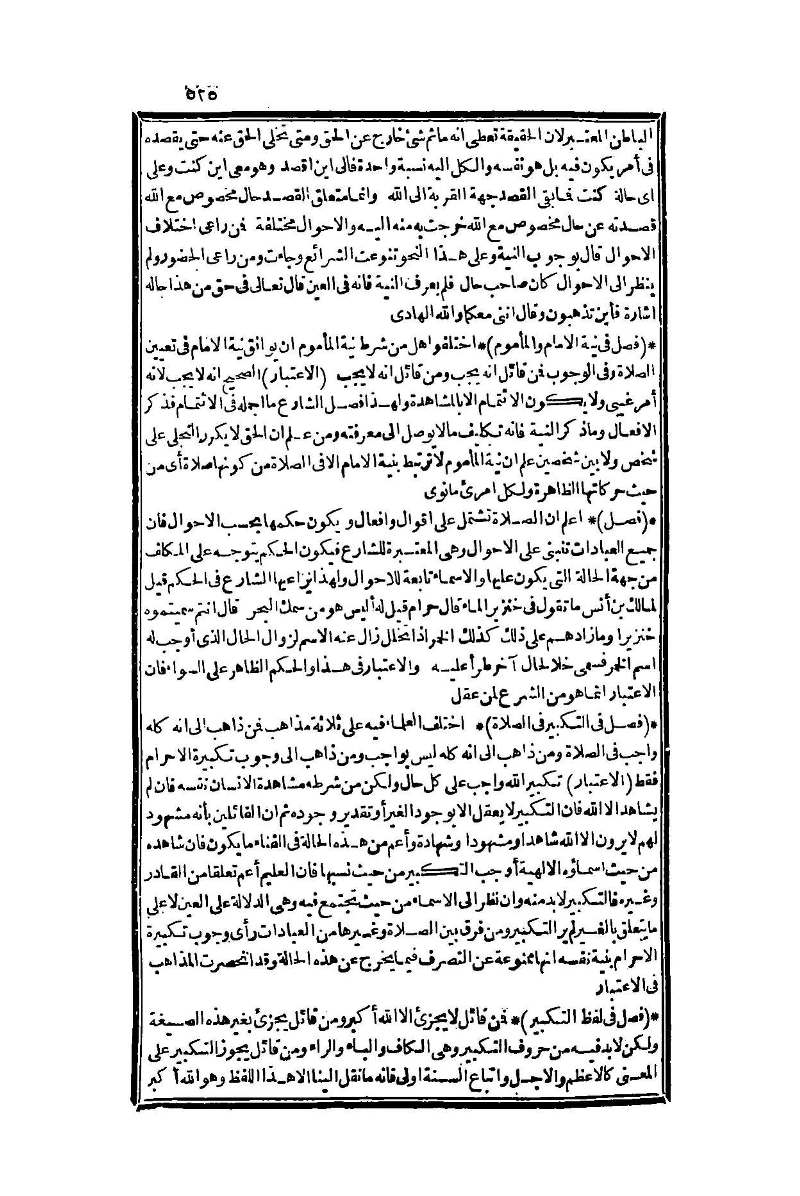 ٥٢٥
الباطن المعتبر لان الحقيقة تعطى انه ما ثم شئ خارج عن الحق ومتى تخلى الحق عنه حتى يقصده
فى أمر يكون فيه بل هو نفسه والكل اليه نسبة واحدة فالى اين اقصد وهو معى اين كنت وعلى
اى حالة كنت فما بقى القصد جهة القربة الى الله وانما متعلق القصد حال مخصوص مع الله
قصدته عن حال مخصوص مع الله خرجت به منه اليه والاحوال مختلفة فمن راعى اختلاف
الاحوال قال بوجوب النية وعلى هذا النحو تنوعت الشرائع وجاءت ومن راعى الحضور ولم
ينظر الى الاحوال كان صاحب حال فلم يعرف النية فانه فى العين قال تعالى فى حق من هذا حاله
اشارة فأين تذهبون وقال اننى معكما والله الهادى
*(فصل فى نية الامام والمأموم)* اختلفوا هل من شرط نية المأموم ان يوافق نية الامام فى تعيين
الصلاة وفى الوجوب فمن قائل انه يجب ومن قائل انه لا يجب (الاعتبار) الصحيح انه لا يجب لانه
أمر غيبى ولا يكون الائتمام الا بالمشاهدة ولهذا فصل الشارع ما اجمله فى الائتمام فذكر
الافعال وما ذكر النية فانه تكليف ما لا يوصل الى معرفته ومن علم ان الحق لا يكرر التجلى على
شخص ولا بين شخصين علم ان نية المأموم لا ترتبط بنية الامام الا فى الصلاة من كونها صلاة أى من
حيث حركاتها الظاهرة ولكل امرئ ما نوى
*(فصل)* اعلم ان الصلاة تشتمل على اقوال وافعال ويكون حكمها بحسب الاحوال فان
جميع العبادات تنبنى على الاحوال وهى المعتبرة للشارع فيكون الحكم يتوجه على المكلف
من جهة الحالة التى يكون عليها والاسماء تابعة للاحوال ولهذا يراعيها الشارع فى الحكم قيل
لمالك بن أنس ما تقول فى خنزير الماء قال حرام قيل له أليس هو من سمك البحر قال انتم سميتموه
خنزيرا وما زادهم على ذلك كذلك الخمر اذا تخلل زال عنه الاسم لزوال الحال الذى أوجب له
اسم الخمر فسمى خلا لحال آخر طرأ عليه والاعتبار فى هذا والحكم الظاهر على السواء فان
الاعتبار انما هو من الشرع لمن عقل
*(فصل فى التكبير فى الصلاة)* اختلف العلماء فيه على ثلاثة مذاهب فمن ذاهب الى انه كله
واجب فى الصلاة ومن ذاهب الى انه كله ليس بواجب ومن ذاهب الى وجوب تكبيرة الاحرام
فقط (الاعتبار) تكبير الله واجب على كل حال ولكن من شرطه مشاهدة الانسان نفسه فان لم
يشاهد الا الله فان التكبير لا يعقل الا بوجود الغير أو تقدير وجوده ثم ان القائلين بأنه مشهود
لهم لا يرون الا الله شاهدا ومشهودا وشهادة وأعم من هذه الحالة فى الفناء ما يكون فان شاهده
من حيث اسماؤه الالهية أوجب التكبير من حيث نسبها فان العليم أعم تعلقا من القادر
وغيره فالتكبير لا بد منه وان نظر الى الاسماء من حيث تجتمع فيه وهى الدلالة على العين لا على
ما يتعلق بالغير لم ير التكبير ومن فرق بين الصلاة وغيرها من العبادات رأى وجوب تكبيرة
الاحرام بنية نفسه انها ممنوعة عن التصرف فيما يخرج عن هذه الحالة وقد انحصرت المذاهب
فى الاعتبار
*(فصل فى لفظ التكبير)* فمن قائل لا يجزئ الا الله أكبر ومن قائل يجزئ بغير هذه الصيغة
ولكن لا بد فيه من حروف التكبير وهى الكاف والباء والراء ومن قائل يجوز التكبير على
المعنى كالاعظم والاجل واتباع السنة اولى فانه ما نقل الينا الا هذا اللفظ وهو الله أكبر